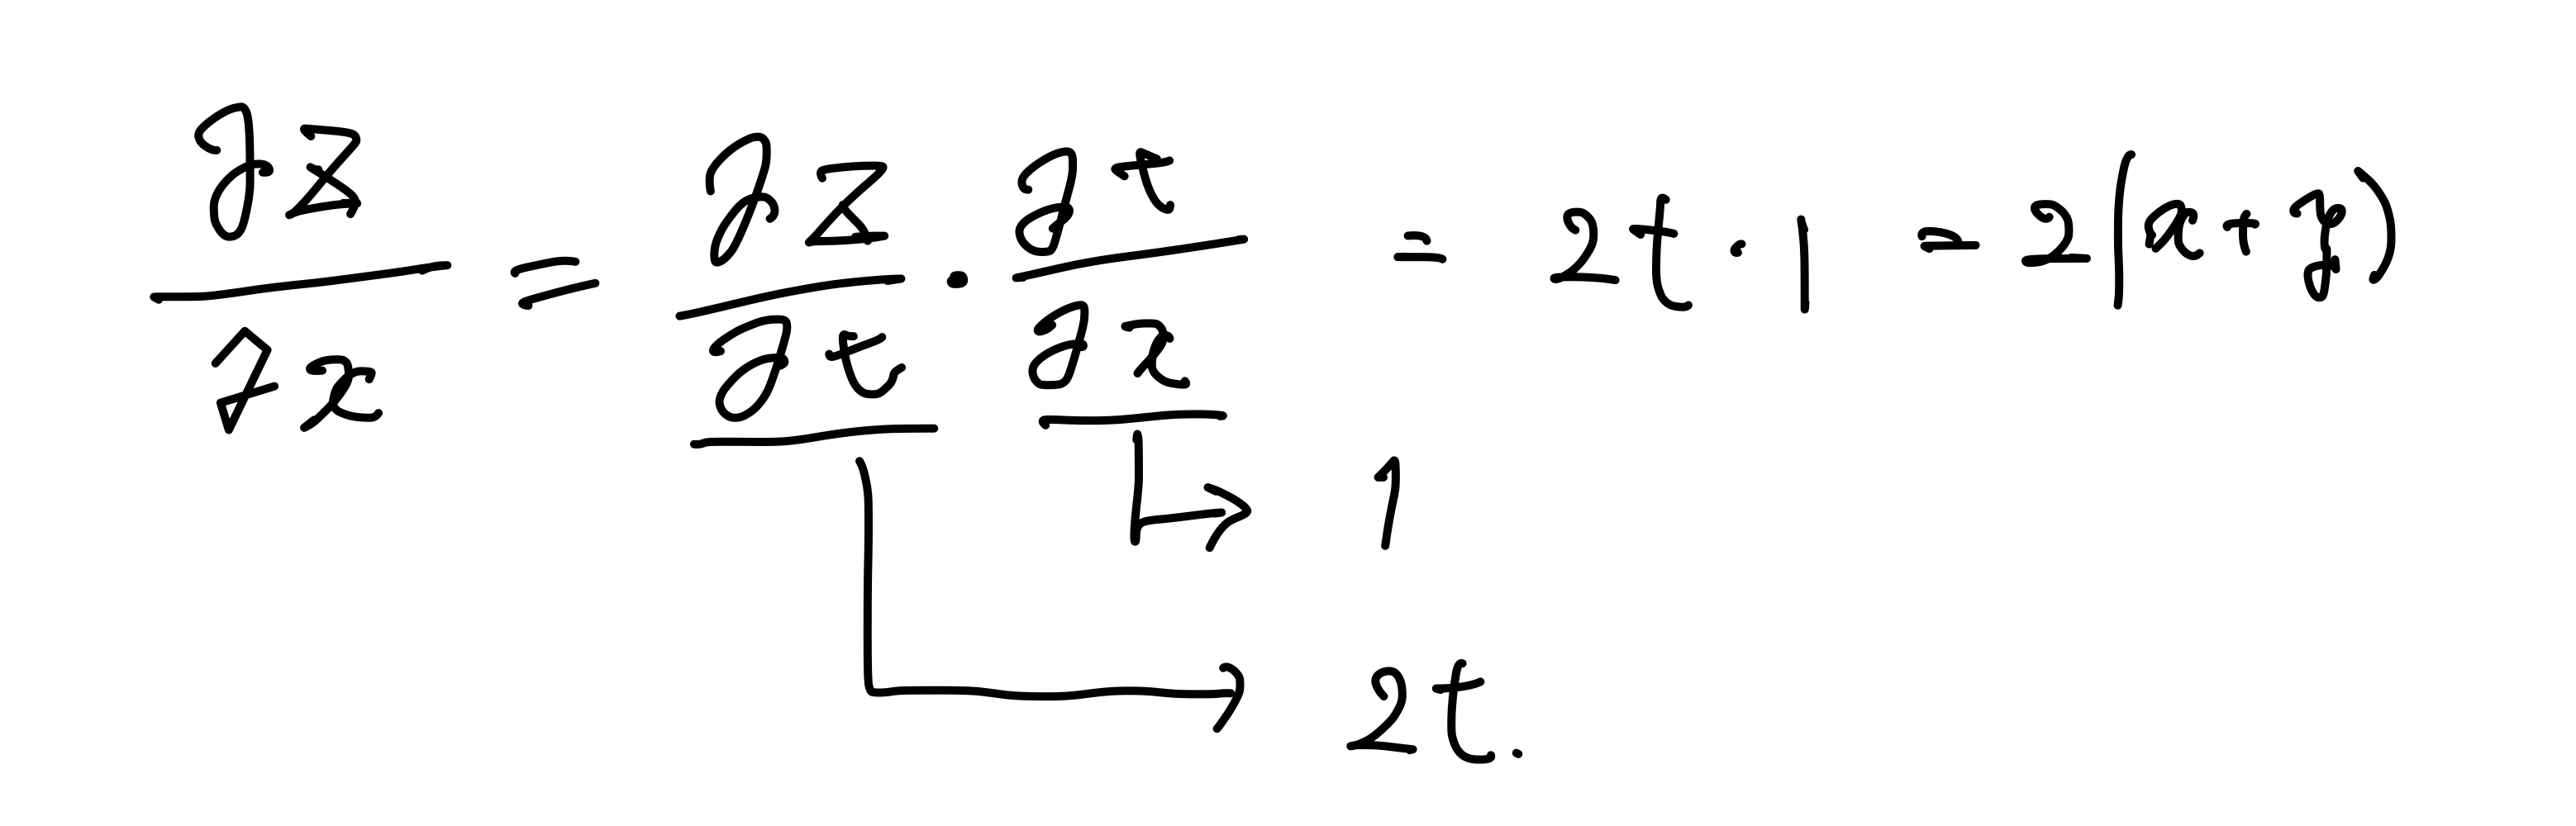 ∂z/∂x = ∂z/∂t · ∂t/∂x = 2t · 1 = 2(x+y)
→ 1
→ 2t.